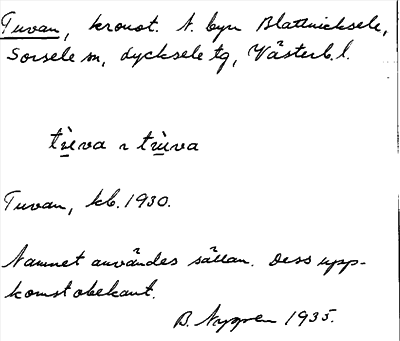 Tuvan, kronot. N. byn Blattnicksele,
Sorsele sn, Lycksele tg, Västerb. l.
tu̱va ~ tu̱va
Tuvan, kb. 1930.
Namnet användes sällan. Dess upp-
komst obekant.
B. Nygren 1935.